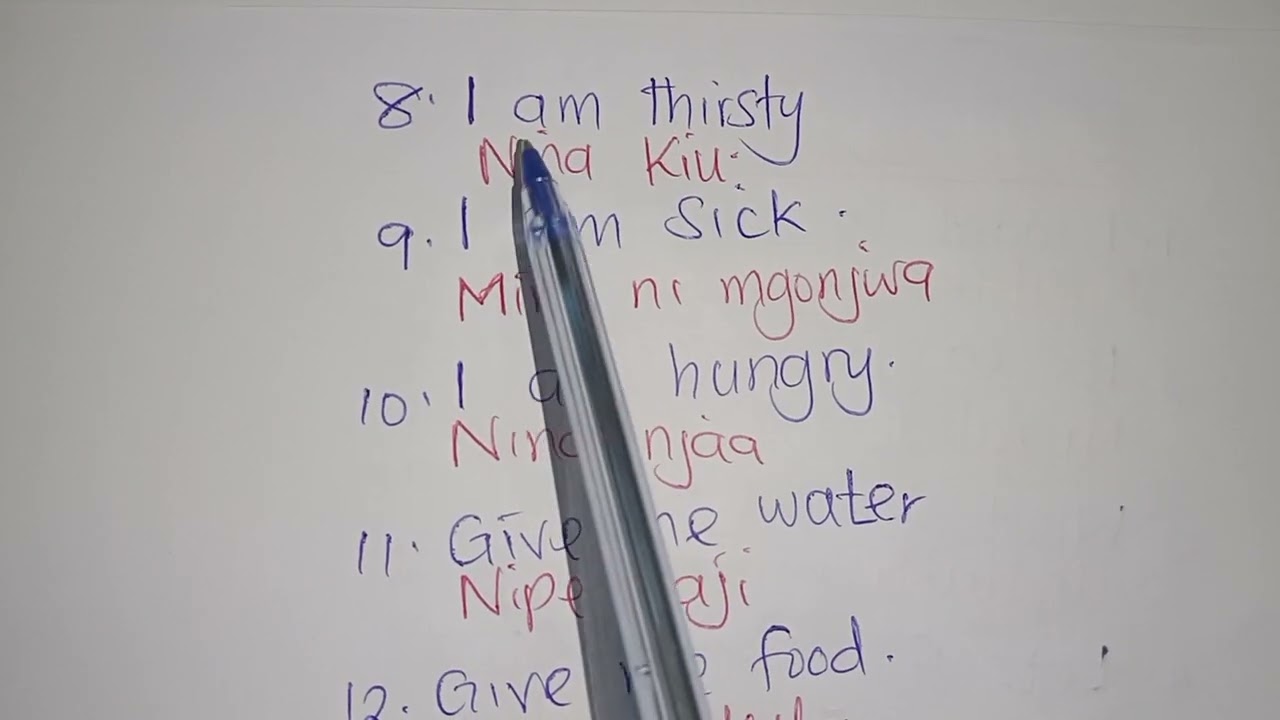 8. I am thirsty
Nina Kiu.
9. I am sick.
ni mgonjwa
10. I hungry.
Nina njaa
11. Give me water
Nipe maji
12. Give me food.